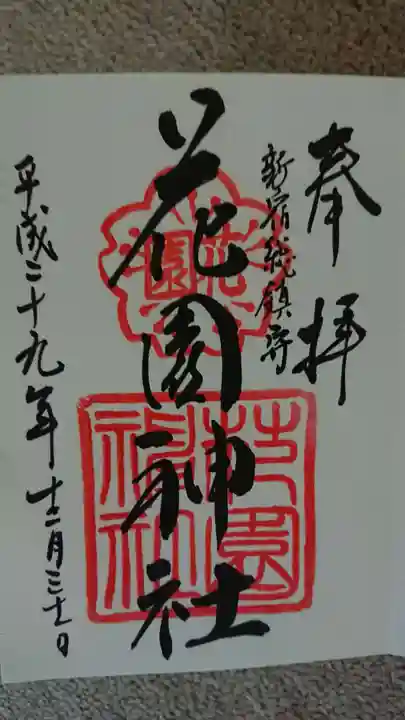 奉拝
新宿総鎮守
花園神社
花園
花園神社
平成二十九年十二月三十一日